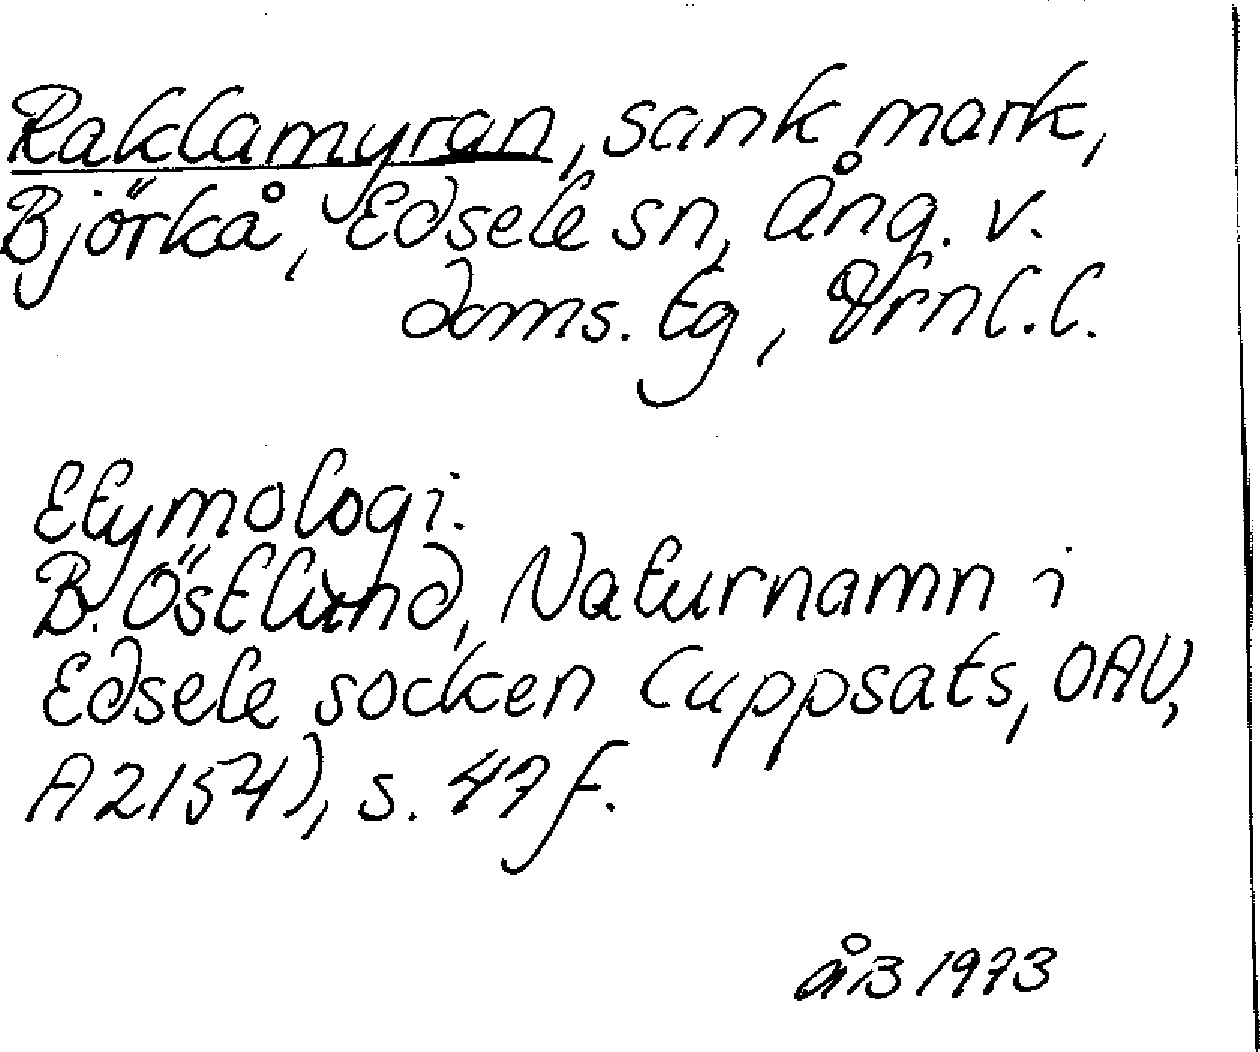 Raklamyran, sank mark,
Björkå, Edsele sn, Ång. v.
doms. tg, Vrnl.l.
Etymologi.
B. Östlund, Naturnamn i
Edsele socken (uppsats, OAU,
A2154), s. 47 f.
åB 1973